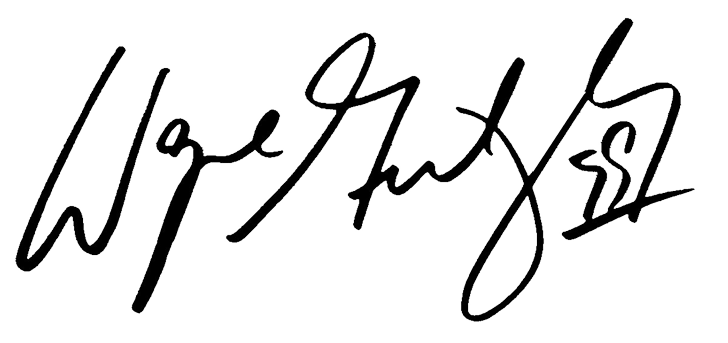 Wayne Gretzky 99